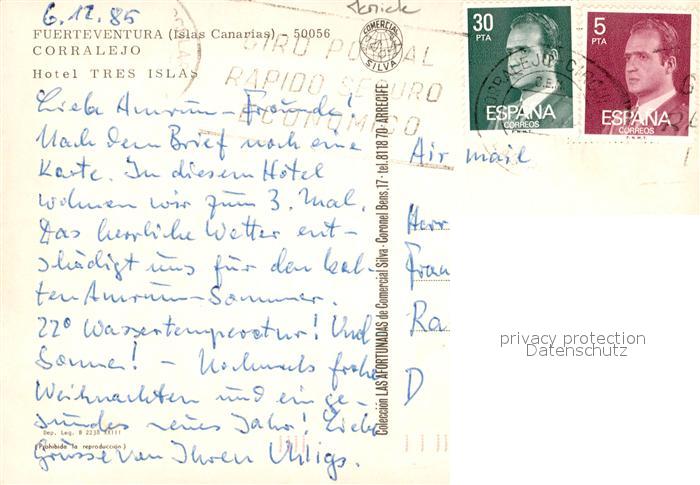 6.12.85
FUERTEVENTURA (Islas Canarias) - 50056
CORRALEJO
Hotel TRES ISLAS
Liebe Amrum-Freunde!
Nach dem Brief noch eine
Karte. In diesem Hotel
wohnen wir zum 3. Mal.
Das herrliche Wetter ent-
schädigt uns für den kal-
ten Amrum-Sommer.
22° Wassertemperatur! Und
Sonne! - Nochmals frohe
Weihnachten und ein ge-
sundes neues Jahr! Liebe
Grüsse von Ihren Uhligs.
Dep. Leg. B 2238 XXIII
(Prohibida la reproducción)
GIRO POSTAL
RAPIDO SEGURO
ECONOMICO
COMERCIAL
SILVA
Colección LAS AFORTUNADAS de Comercial Silva - Coronel Bens, 17 - tel. 81 18 70 - ARRECIFE
30
PTA
ESPAÑA
CORREOS
5
PTA
ESPAÑA
CORREOS
CORRALEJO
Air mail
Herr
Frau
Ra
D
privacy protection
Datenschutz